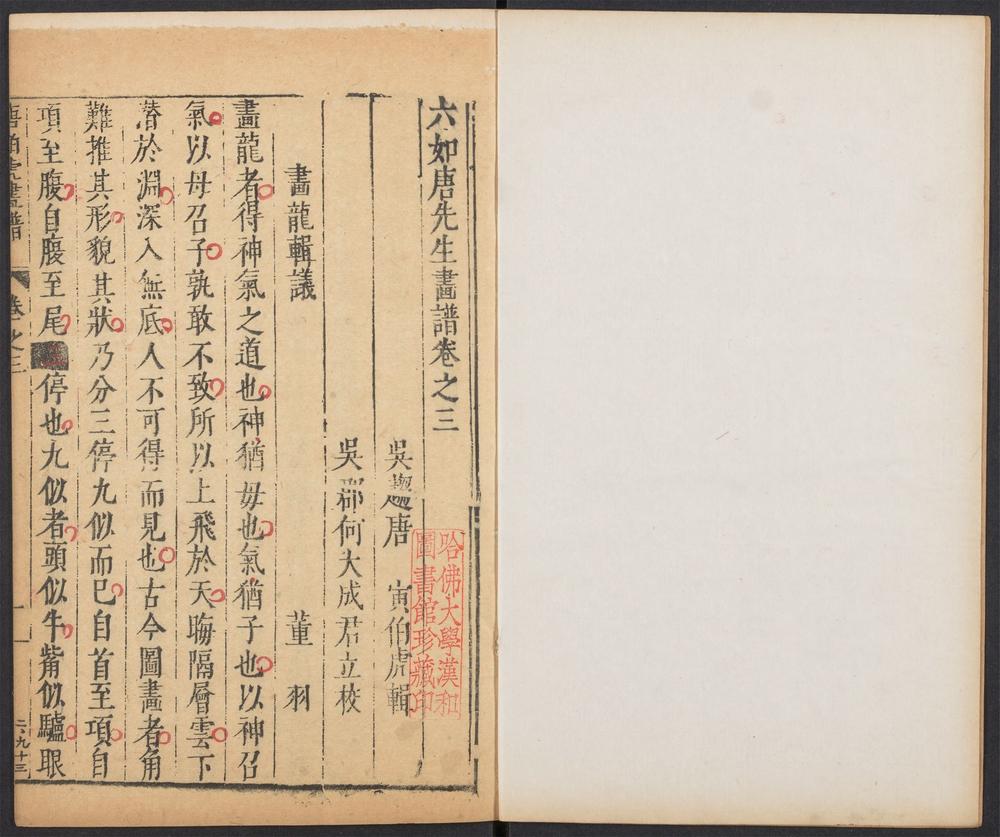 六如唐先生畫譜卷之三
吳趨唐 寅伯虎輯
吳郡何大成君立校
哈佛大學漢和
圖書館珍藏印
畫龍輯議 董 羽
畫龍者得神氣之道也神猶毋也氣猶子也以神召
氣以母召子孰敢不致所以上飛於天晦隔層雲下
潛於淵深入無底人不可得而見也古今圖畫者角
難推其形貌其狀乃分三停九似而已自首至項自
項至腹自腹至尾三停也九似者頭似牛觜似驢眼
唐伯虎畫譜 卷之三 一 六九十三